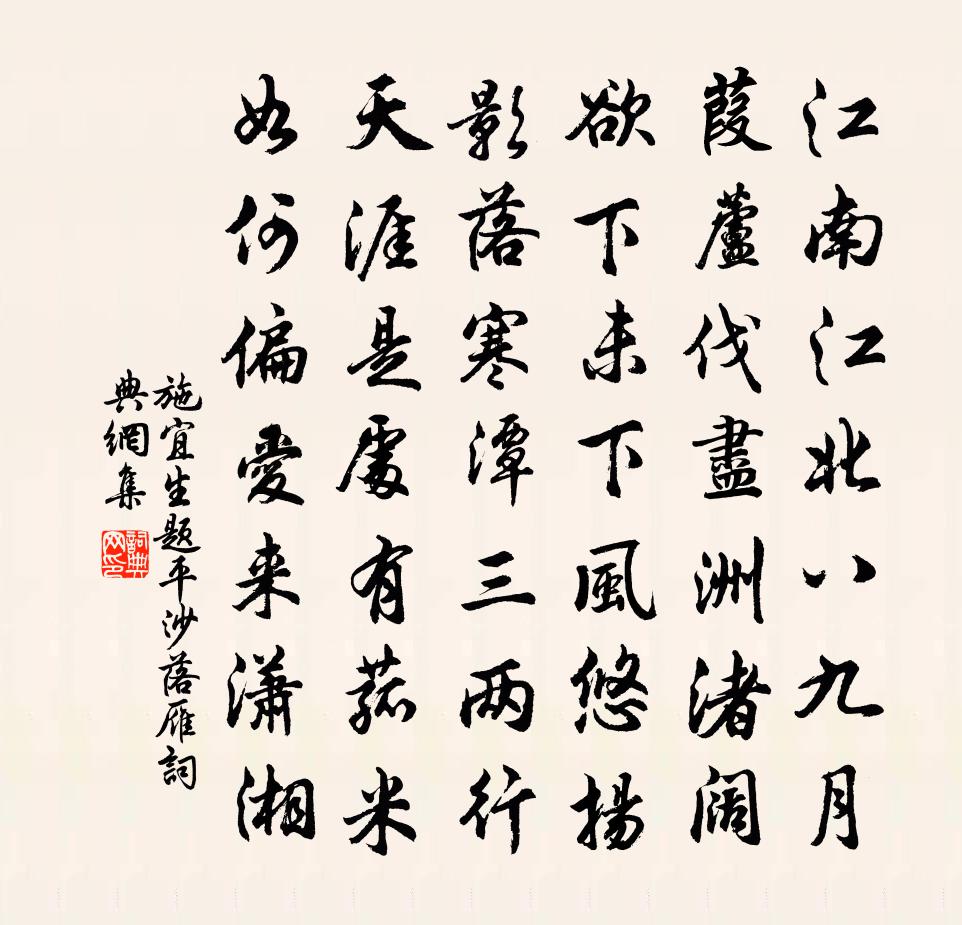 江南江北八九月
葭蘆伐盡洲渚闊
欲下未下風悠揚
影落寒潭三兩行
天涯是處有菰米
如何偏愛来瀟湘
施宜生題平沙落雁詞
典網集
詞典网印